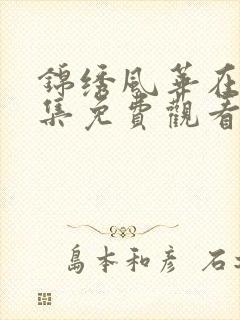 錦绣風華在
集免費觀看
島本和彦 石